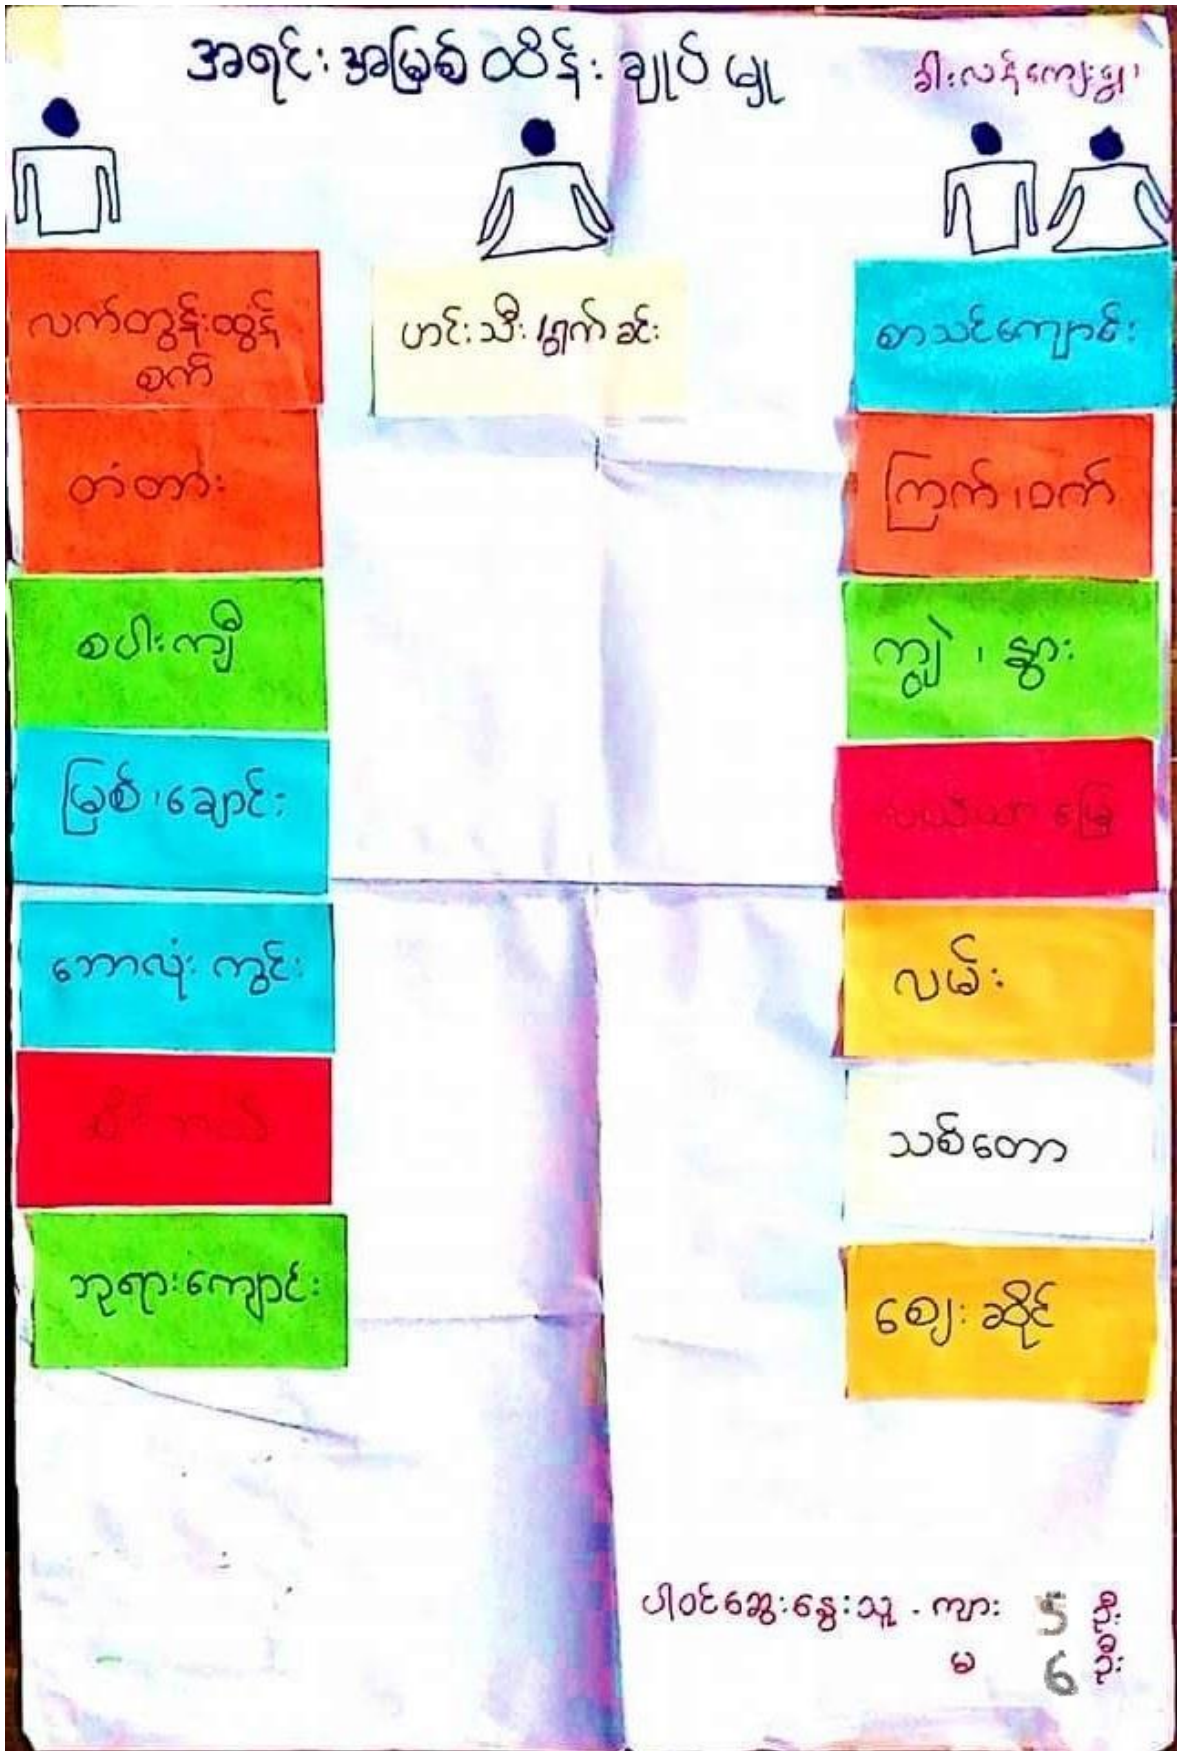 အရင်းအမြစ်ထိန်းချုပ်မှု
ခါးလန်ကျေးရွာ
လက်တွန်းထွန်
စက်
တံတား
စပါးကျီ
မြစ်၊ချောင်း
ဘောလုံးကွင်း
ဘုရားကျောင်း
ဟင်းသီး၊ရွက်ခင်း
စာသင်ကျောင်း
ကြက်၊ဝက်
ကျွဲ၊နွား
လယ်ယာမြေ
လမ်း
သစ်တော
ဈေးဆိုင်
ပါဝင်ဆွေးနွေးသူ - ကျား 5 ဦး
မ 6 ဦး